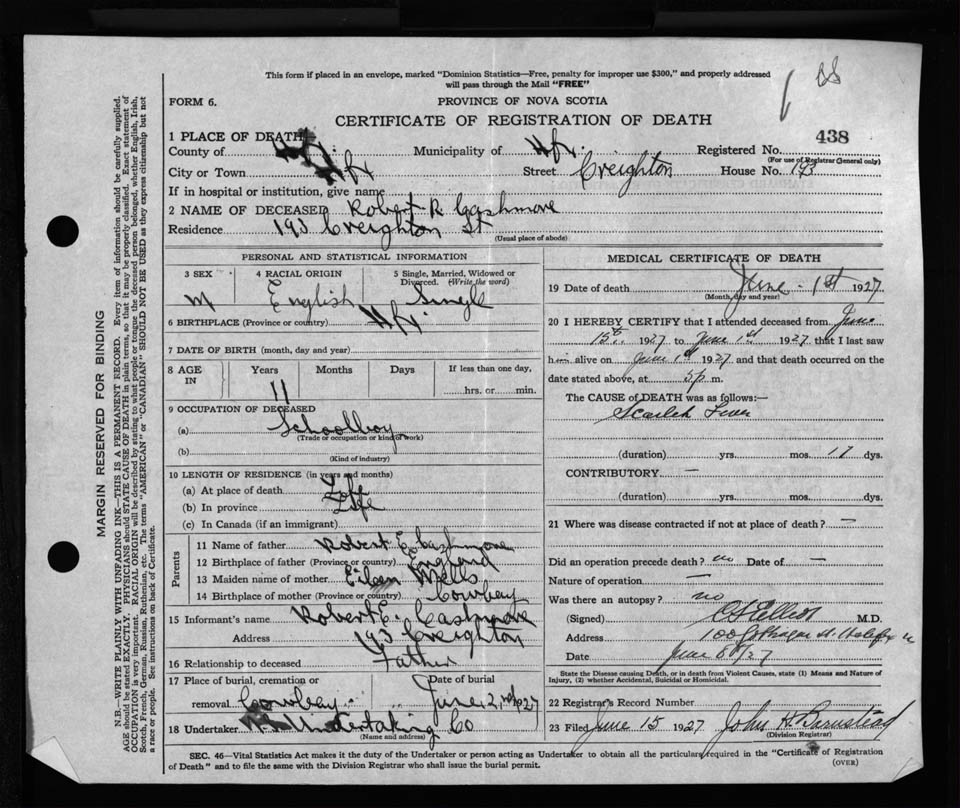 This form if placed in an envelope, marked "Dominion Statistics—Free, penalty for improper use $300," and properly addressed
will pass through the Mail "FREE"
FORM 6.
PROVINCE OF NOVA SCOTIA
CERTIFICATE OF REGISTRATION OF DEATH
438
1 PLACE OF DEATH
County of Municipality of Hfx. Registered No.
(For use of Registrar General only)
City or Town Hfx Street Creighton House No. 193
If in hospital or institution, give name
2 NAME OF DECEASED Robert R Cashmore
Residence 193 Creighton St
(Usual place of abode)
PERSONAL AND STATISTICAL INFORMATION
3 SEX 4 RACIAL ORIGIN 5 Single, Married, Widowed or Divorced. (Write the word)
M English Single
6 BIRTHPLACE (Province or country) Hfx.
7 DATE OF BIRTH (month, day and year)
8 AGE IN Years Months Days If less than one day,
11 hrs. or min.
9 OCCUPATION OF DECEASED
(a) Schoolboy
(Trade or occupation or kind of work)
(b)
(Kind of industry)
10 LENGTH OF RESIDENCE (in years and months)
(a) At place of death Life
(b) In province Life
(c) In Canada (if an immigrant)
Parents
11 Name of father Robert E Cashmore
12 Birthplace of father (Province or country) England
13 Maiden name of mother Eileen Mells
14 Birthplace of mother (Province or country) Cowbay
15 Informant's name Robert E. Cashmore
Address 193 Creighton
16 Relationship to deceased Father
17 Place of burial, cremation or Date of burial
removal Cowbay June 2nd 1927
18 Undertaker Undertaking Co
(Name and address)
MEDICAL CERTIFICATE OF DEATH
19 Date of death June 1st 1927
(Month, day and year)
20 I HEREBY CERTIFY that I attended deceased from June
15th 1927 to June 1st 1927 that I last saw
him alive on June 1st 1927 and that death occurred on the
date stated above, at 5p m.
The CAUSE of DEATH was as follows:—
Scarlet Fever
(duration) yrs. mos. 17 dys.
CONTRIBUTORY. —
(duration) yrs. mos. dys.
21 Where was disease contracted if not at place of death? —
Did an operation precede death? no Date of —
Nature of operation —
Was there an autopsy? no
(Signed) Elliot M.D.
Address 100 Halifax
Date June 8th/27
State the Disease causing Death, or in death from Violent Causes, state (1) Means and Nature of
Injury, (2) whether Accidental, Suicidal or Homicidal.
22 Registrar's Record Number
23 Filed June 15 1927 John H. Barnstead
(Division Registrar)
SEC. 46—Vital Statistics Act makes it the duty of the Undertaker or person acting as Undertaker to obtain all the particulars required in the "Certificate of Registration
of Death" and to file the same with the Division Registrar who shall issue the burial permit.
(OVER)
MARGIN RESERVED FOR BINDING
N.B.—WRITE PLAINLY WITH UNFADING INK—THIS IS A PERMANENT RECORD. Every item of information should be carefully supplied.
AGE should be stated EXACTLY. PHYSICIANS should STATE CAUSE OF DEATH in plain terms, so that it may be properly classified. Exact statement of
OCCUPATION is very important. RACIAL ORIGIN will be described by stating to what people or tongue the deceased person belonged, whether English, Irish,
Scotch, French, German, Russian, Ruthenian, etc. The terms "AMERICAN" or "CANADIAN" SHOULD NOT BE USED as they express citizenship but not
a race or people. See instructions on back of Certificate.